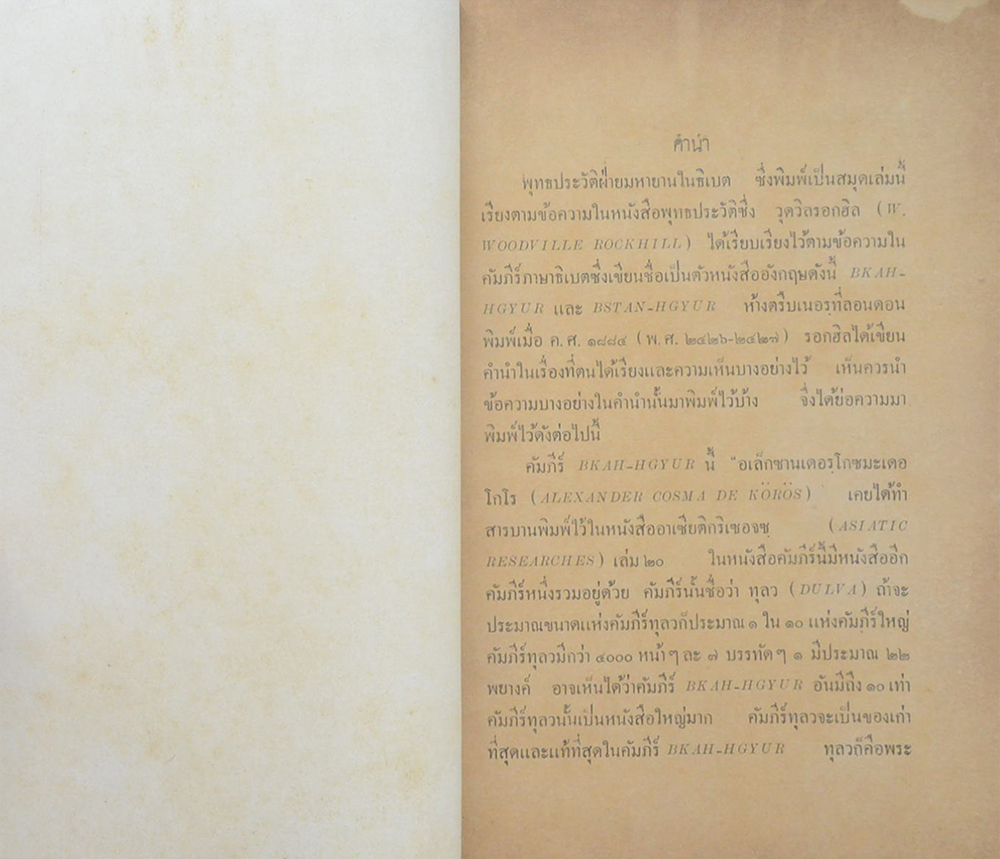 คำนำ
พุทธประวัติฝ่ายมหายานในธิเบต ซึ่งพิมพ์เป็นสมุดเล่มนี้
เรียงตามข้อความในหนังสือพุทธประวัติซึ่ง วุดวิลรอกฮิล (W.
WOODVILLE ROCKHILL) ได้เรียบเรียงไว้ตามข้อความใน
คัมภีร์ภาษาธิเบตซึ่งเขียนชื่อเป็นตัวหนังสืออังกฤษดังนี้ BKAH-
HGYUR และ BSTAN-HGYUR ห้างตรึบเนอรฺที่ลอนดอน
พิมพ์เมื่อ ค.ศ. ๑๘๘๔ (พ.ศ. ๒๔๒๖-๒๔๒๗) รอกฮิลได้เขียน
คำนำในเรื่องที่ตนได้เรียงและความเห็นบางอย่างไว้ เห็นควรนำ
ข้อความบางอย่างในคำนำนั้นมาพิมพ์ไว้บ้าง จึ่งได้ย่อความมา
พิมพ์ไว้ดังต่อไปนี้
คัมภีร์ BKAH-HGYUR นี้ "อเล็กซานเดอรฺโกซมะเดอ
โกโร (ALEXANDER COSMA DE KÖRÖS) เคยได้ทำ
สารบานพิมพ์ไว้ในหนังสืออาเซียติกริเซอจซฺ (ASIATIC
RESEARCHES) เล่ม ๒๐ ในหนังสือคัมภีร์นี้มีหนังสืออีก
คัมภีร์หนึ่งรวมอยู่ด้วย คัมภีร์นั้นชื่อว่า ทุลว (DULVA) ถ้าจะ
ประมาณขนาดแห่งคัมภีร์ทุลวก็ประมาณ ๑ ใน ๑๐ แห่งคัมภีร์ใหญ่
คัมภีร์ทุลวมีกว่า ๔๐๐๐ หน้า ๆ ละ ๗ บรรทัด ๆ ๑ มีประมาณ ๒๒
พยางค์ อาจเห็นได้ว่าคัมภีร์ BKAH-HGYUR อันมีถึง ๑๐ เท่า
คัมภีร์ทุลวนั้นเป็นหนังสือใหญ่มาก คัมภีร์ทุลวจะเป็นของเก่า
ที่สุดและแท้ที่สุดในคัมภีร์ BKAH-HGYUR ทุลวก็คือพระ